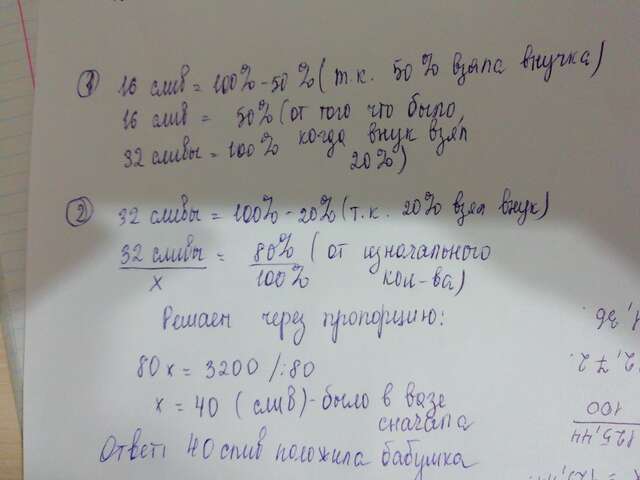 ① 16 слив = 100% - 50% (т.к. 50% взяла внучка)
16 слив = 50% (от того что было,
32 сливы = 100% когда внук взял
20%)
② 32 сливы = 100% - 20% (т.к. 20% взял внук)
32 сливы = 80% (от изначального
x 100% кол-ва)
Решаем через пропорцию:
80x = 3200 /:80
x = 40 (слив) - было в вазе
сначала
Ответ: 40 слив положила бабушка
,36.
2,72.
100
125,44